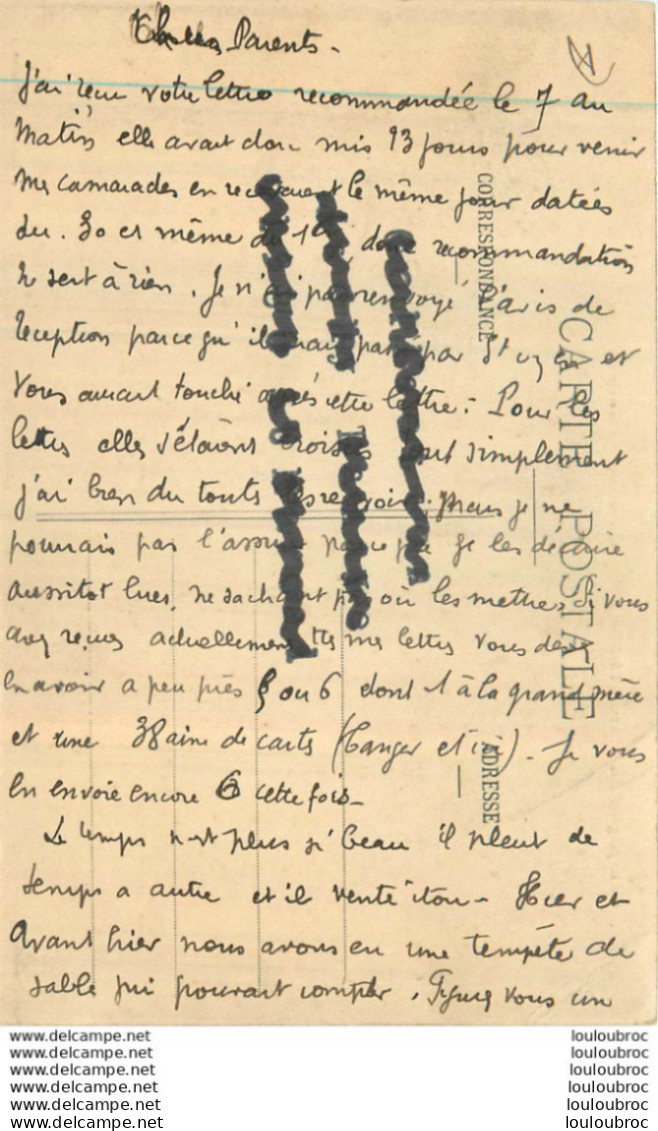 Chers Parents -
J'ai reçu votre lettre recommandée le 7 au
matin elle avait donc mis 13 jours pour venir
mes camarades en recevaient le même jour datées
du 30 et même du 1er donc recommandation
ne sert à rien. Je n'ai pas renvoyé l'avis de
reception parce qu' il par et
vous aurait touché après cette lettre. Pour les
lettres elles s'étaient croisées tout simplement
j'ai bien du toutes les recevoir. Mais je ne
pourrais pas l'assurer parce que je les déchire
aussitot lues, ne sachant pas où les mettre, si vous
avez reçues actuellement ttes mes lettres vous devez
en avoir a peu près 5 ou 6 dont 1 à la grand mère
et une 38aine de cartes (Tanger et ici) - Je vous
en envoie encore 6 cette fois -
Le temps n'est plus si beau il pleut de
temps a autre et il vente itou - Hier et
avant hier nous avons eu une tempête de
sable qui pourrait compter. Figurez vous un
CORRESPONDANCE
CARTE POSTALE
ADRESSE
www.delcampe.net louloubroc
www.delcampe.net louloubroc
www.delcampe.net louloubroc
www.delcampe.net louloubroc
www.delcampe.net louloubroc
www.delcampe.net louloubroc